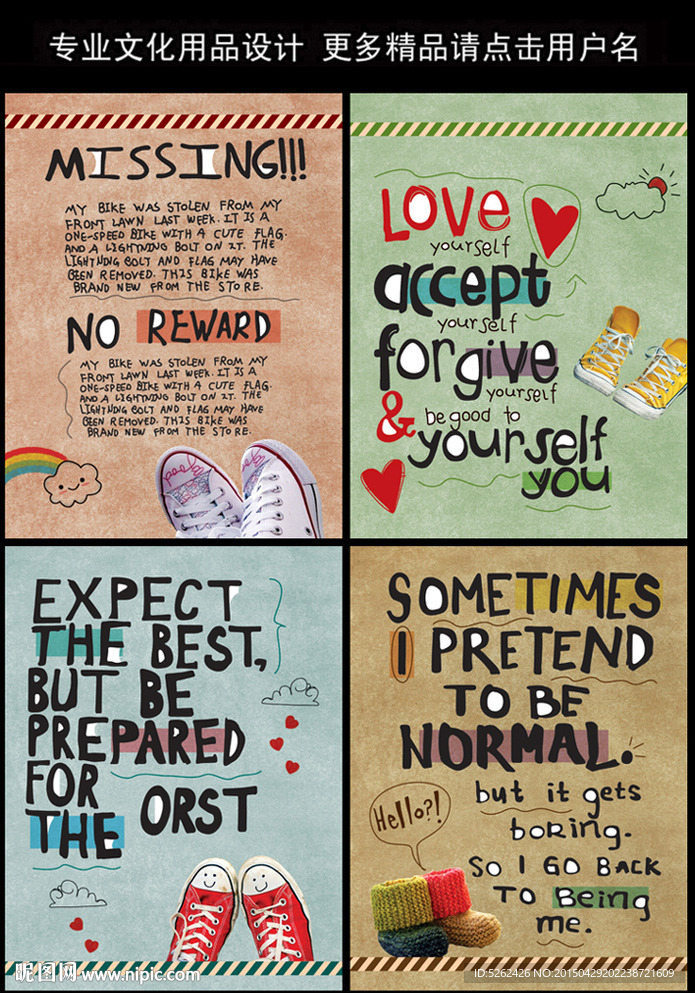 专业文化用品设计 更多精品请点击用户名
MISSING!!!
MY BIKE WAS STOLEN FROM MY
FRONT LAWN LAST WEEK. IT IS A
ONE-SPEED BIKE WITH A CUTE FLAG.
AND A LIGHTNING BOLT ON IT. THE
LIGHTNING BOLT AND FLAG MAY HAVE
BEEN REMOVED. THIS BIKE WAS
BRAND NEW FROM THE STORE.
NO REWARD
MY BIKE WAS STOLEN FROM MY
FRONT LAWN LAST WEEK. IT IS A
ONE-SPEED BIKE WITH A CUTE FLAG.
AND A LIGHTNING BOLT ON IT. THE
LIGHTNING BOLT AND FLAG MAY HAVE
BEEN REMOVED. THIS BIKE WAS
BRAND NEW FROM THE STORE.
good
LOVe
yourself
accept
yourself
forgive
yourself
& be good to
yourself
you
EXPECT
THE BEST,
BUT BE
PREPARED
FOR
THE ORST
SOMETIMES
I PRETEND
TO BE
NORMAL.
but it gets
boring.
Hello?!
SO I GO BACK
TO Being
me.
昵图网 www.nipic.com
ID:5262426 NO:20150429202238721609